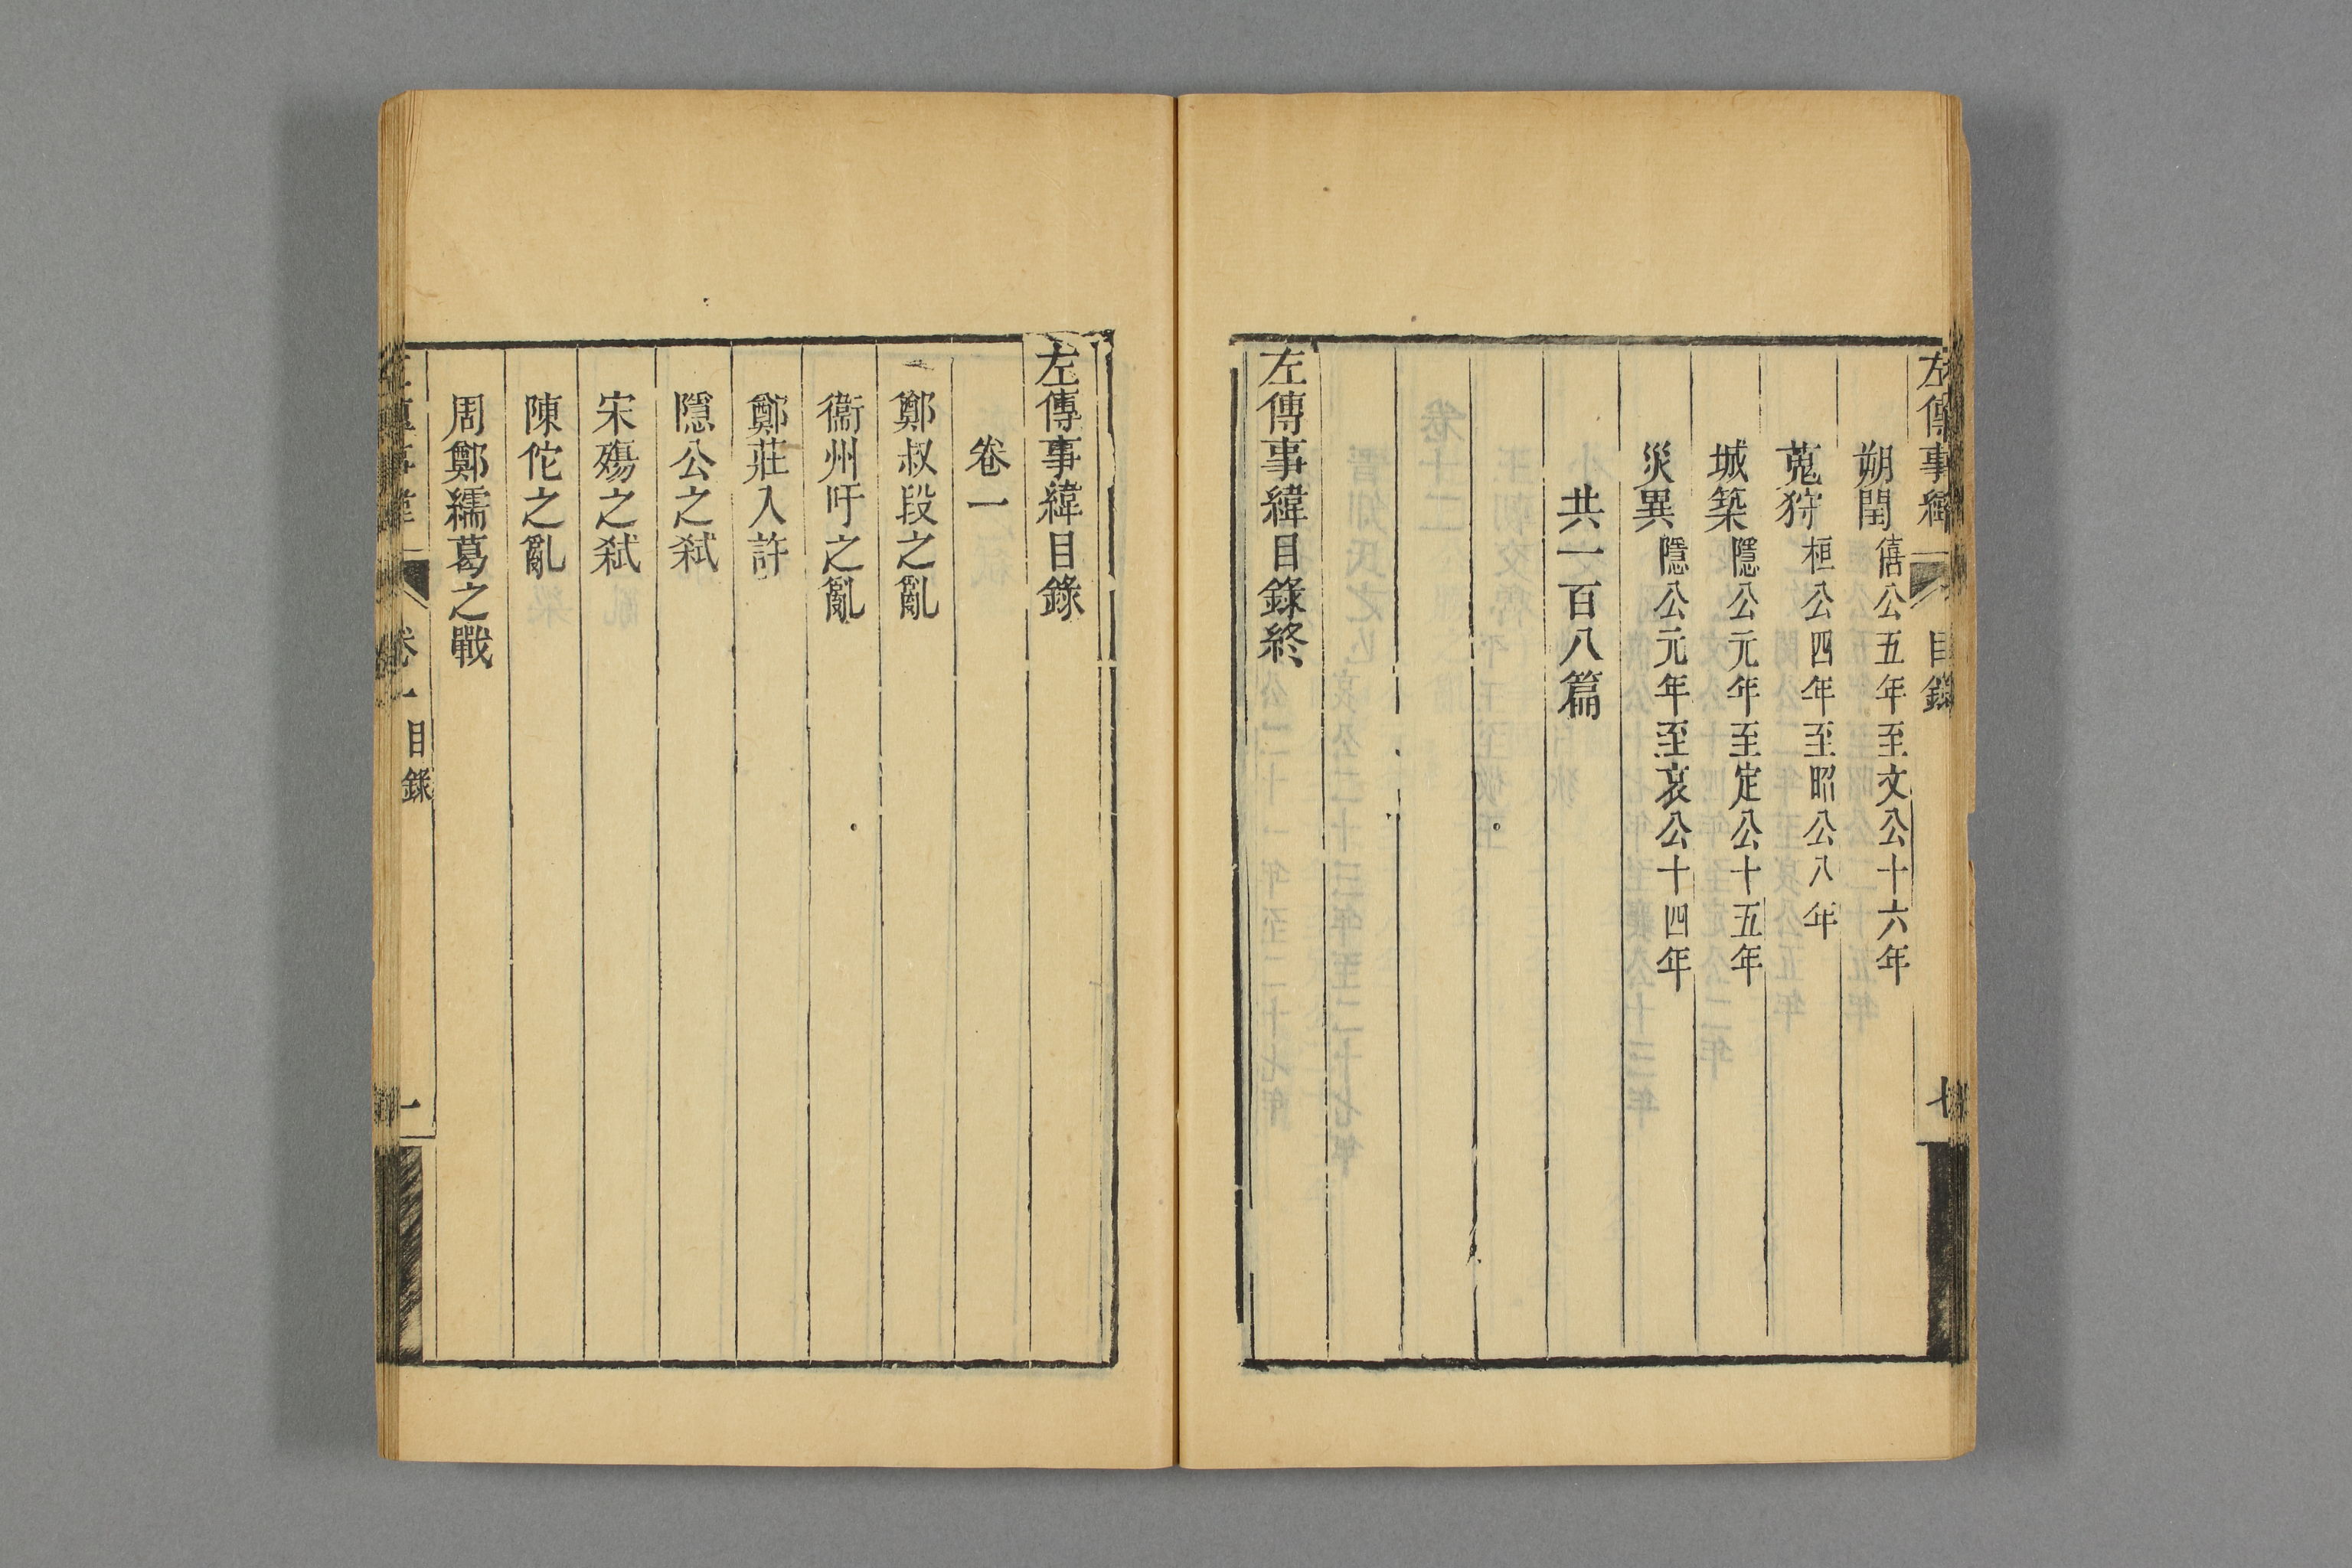 左傳事緯 目錄 七
朔閏 僖公五年至文公十六年
蒐狩 桓公四年至昭公八年
城築 隱公元年至定公十五年
災異 隱公元年至哀公十四年
共一百八篇
左傳事緯目錄終
左傳事緯目錄
卷一
鄭叔段之亂
衞州吁之亂
鄭莊入許
隱公之弑
宋殤之弑
陳佗之亂
周鄭繻葛之戰
傳事緯 卷一 目錄 一